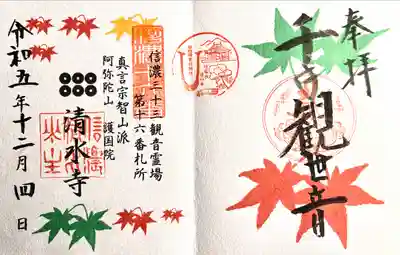 奉拝
千手観世音
信濃三十三観音霊場
第十六番札所
真言宗智山派
阿弥陀山 護国院
清水寺
令和五年十二月四日